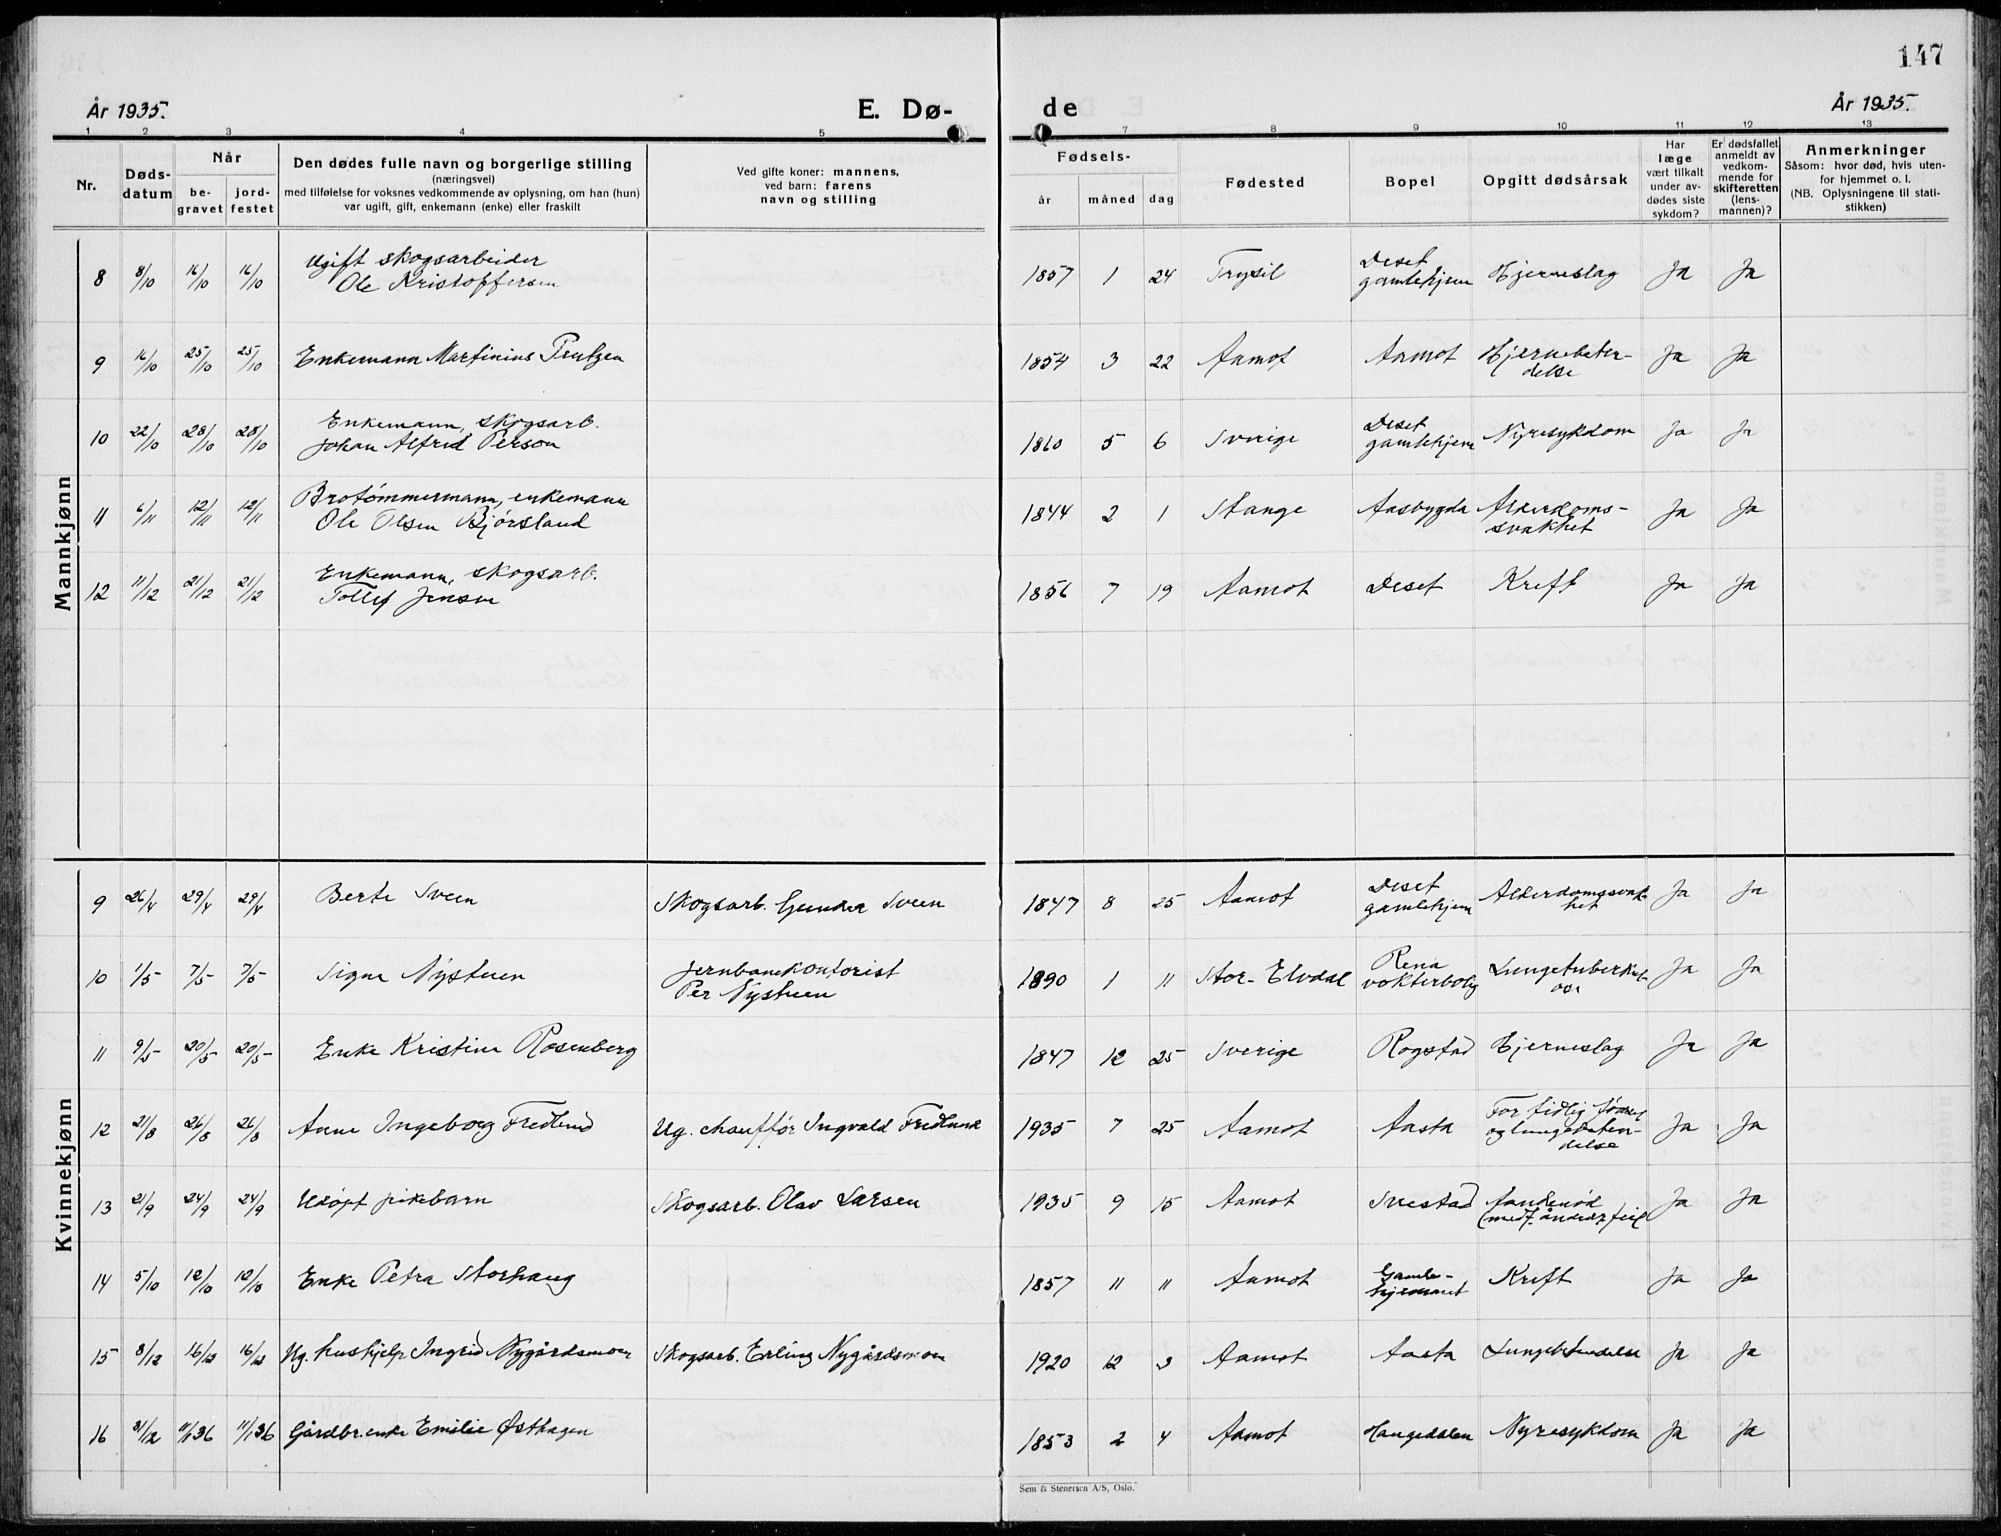 147
År 1935.
E. Dø-
de
År 1935.
1 2 3 4 5 7 8 9 10 11 12 13
Nr.
Døds-
datum
Når
be-
gravet
jord-
festet
Den dødes fulle navn og borgerlige stilling
(næringsvei)
med tilføielse for voksnes vedkommende av oplysning, om han (hun)
var ugift, gift, enkemann (enke) eller fraskilt
Ved gifte koner: mannens,
ved barn: farens
navn og stilling
Fødsels-
år måned dag
Fødested
Bopel
Opgitt dødsårsak
Har
læge
vært tilkalt
under av-
dødes siste
sykdom?
Er dødsfallet
anmeldt av
vedkom-
mende for
skifteretten
(lens-
mannen)?
Anmerkninger
Såsom: hvor død, hvis uten-
for hjemmet o. l.
(NB. Oplysningene til stati-
stikken)
Mannkjønn
8 8/10 16/10 16/10 Ugift skogsarbeider
Ole Kristoffersen
1857 1 24 Trysil Deset
gamlehjem Hjerneslag Ja Ja
9 16/10 25/10 25/10 Enkemann Martinius
1854 3 22 Aamot Aamot Hjernebeten-
delse Ja Ja
10 22/10 28/10 28/10 Enkemann, skogsarb.
Johan Alfred Person
1860 5 6 Sverige Deset
gamlehjem Nyresykdom Ja Ja
11 6/11 12/11 12/11 Brotømmermann, enkemann
Ole Olsen Bjørsland
1844 2 1 Stange Aasbygda Alderdoms-
svakhet Ja Ja
12 11/12 21/12 21/12 Enkemann, skogsarb.
Tollef Jensen
1856 7 19 Aamot Deset Kreft Ja Ja
Kvinnekjønn
9 26/4 29/4 29/4 Berte Sveen Skogsarb. Gunder Sveen
1847 8 25 Aamot Deset
gamlehjem Alderdomssvak-
het Ja Ja
10 1/5 7/5 7/5 Signe Nystuen Jernbanekontorist
Per Nystuen
1890 1 11 Stor-Elvdal Rena
vokterbolig Lungetuberkul-
ose Ja Ja
11 9/5 20/5 20/5 Enke Kristine Rosenberg
1847 12 25 Sverige Rogstad Hjerneslag Ja Ja
12 21/8 26/8 26/8 Anne Ingeborg Fredlund Ug. chauffør Ingvald Fredlund
1935 7 25 Aamot Aasta For tidlig fødsel
og lungebeten-
delse Ja Ja
13 21/9 24/9 24/9 Udøpt pikebarn Skogsarb. Olav Larsen
1935 9 15 Aamot Aandenød
Ja Ja
14 5/10 12/10 12/10 Enke Petra Storhaug
1857 11 11 Aamot Gamle-
hjemmet Kreft Ja Ja
15 8/12 16/12 16/12 Ug. hushjelp Ingrid Nygårdsmoen Skogsarb. Erling Nygårdsmoen
1920 12 3 Aamot Aasta Lungebetendelse Ja Ja
16 31/12 11/1 36 11/1 36 Gårdbr.enke Emilie Østhagen
1853 2 4 Aamot Haugedalen Nyresykdom Ja Ja
Sem & Stenersen A/S, Oslo.